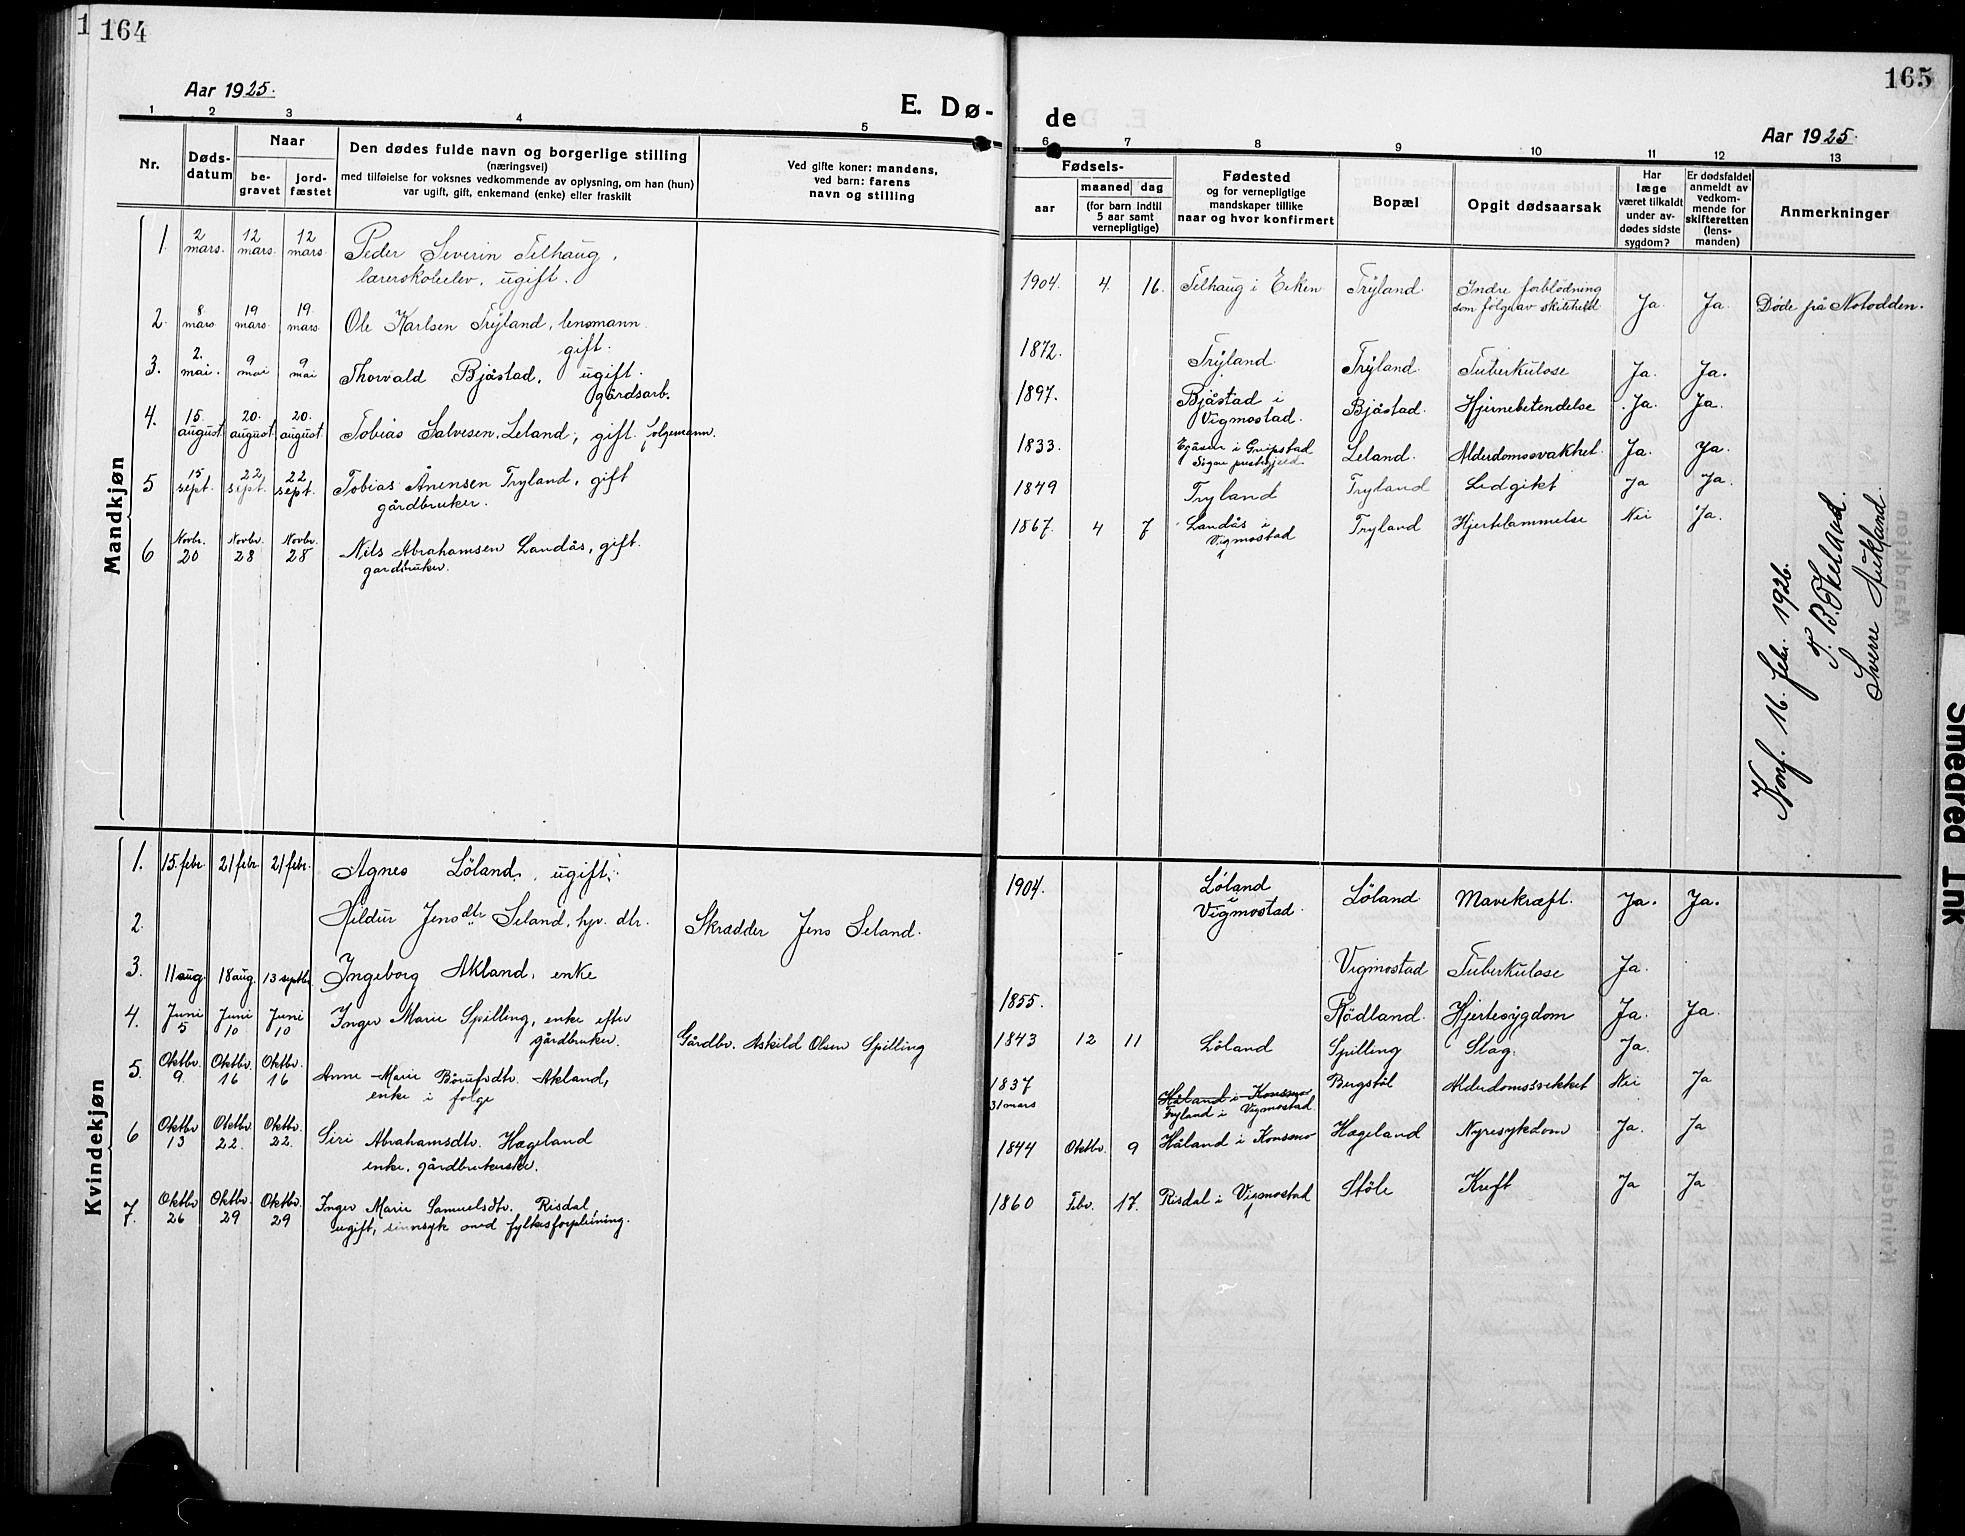 164
Aar 1925.
E. Dø-
1 2 3 4 5
Nr.
Døds-
datum
Naar
be-
gravet
jord-
fæstet
Den dødes fulde navn og borgerlige stilling
(næringsvei)
med tilføielse for voksnes vedkommende av oplysning, om han (hun)
var ugift, gift, enkemand (enke) eller fraskilt
Ved gifte koner: mandens,
ved barn: farens
navn og stilling
Mandkjøn
1. 2 mars. 12 mars. 12 mars. Peder Severin Telhaug,
lærerskoleelev, ugift.
2. 8 mars 19 mars. 19 mars. Ole Karlsen Trÿland, lensmann.
gift.
3. 2. mai. 9 mai 9 mai Thorvald Bjåstad, ugift.
gårdsarb.
4. 15. august 20. august 20. august. Tobias Salvesen Leland, gift. folgemann.
5 15 sept. 22 sept. 22 sept. Tobias Ånensen Tryland, gift
gårdbruker.
6 Novbr. 20 Novbr. 28 Novbr. 28 Nils Abrahamsen Landås, gift.
gardbruker.
Kvindekjøn
1. 15. febr. 21 febr. 21 febr. Agnes Löland, ugift.
2. Hildur Jensdtr. Seland, hjv. dtr. Skrædder Jens Seland.
3. 11 aug. 18 aug. 13 septbr. Ingeborg Akland, enke
4. Juni 5 Juni 10 Juni 10 Inger Marie Spilling, enke efter
gårdbruker. Gårdbr. Askild Olsen Spilling
5. Oktbr. 9. Oktbr. 16 Oktbr. 16 Anne Marie Børufsdtr. Akland,
enke i folge
6 Oktbr 13 Oktbr 22. Oktbr. 22. Siri Abrahamsdtr. Hægeland
enke, gårdbrukerske.
7. Oktbr 26 Oktbr. 29 Oktbr. 29 Inger Marie Samuelsdtr. Risdal,
ugift, sinnsyk med fylkesforpleining.
165
de
Aar 1925.
6 7 8 9 10 11 12 13
Fødsels-
aar
maaned dag
(for barn indtil
5 aar samt
vernepligtige)
Fødested
og for vernepligtige
mandskaper tillike
naar og hvor konfirmert
Bopæl
Opgit dødsaarsak
Har
læge
været tilkaldt
under av-
dødes sidste
sygdom?
Er dødsfaldet
anmeldt av
vedkom-
mende for
skifteretten
(lens-
manden)
Anmerkninger
1904. 4. 16. Telhaug i Eiken Trÿland. Indre forblödning
som følge av skiteheld Ja Ja Døde på Notodden.
1872. Trÿland. Trÿland. Tuberkulose Ja. Ja.
1897. Bjåstad i
Vigmostad. Bjåstad. Hjernebetendelse Ja. Ja.
1833. i Greipstad
Sogne prestegjeld Leland. Alderdomssvakhet. Ja. Ja.
1849 Tryland Tryland Ledgikt Ja Ja.
1867. 4 7 Landås i
Vigmostad Tryland Hjertelammelse Nei Ja.
Konf. 16. febr. 1926.
T. B. Økeland.
Sverre Aukland.
1904. Löland
i
Vigmostad. Löland Mavekræft. Ja. Ja.
Vigmostad Tuberkulose Ja.
1855. Rödland. Hjertesygdom Ja. Ja.
1843 12 11 Löland Spilling Slag. Ja.
1837
31 mars Håland i Konsmo
Tryland i Vigmostad. Bergstöl Alderdomssvekket Nei Ja
1844 Oktbr. 9 Håland i Konsmo Hægeland Nyresykdom Ja. Ja
1860 Febr. 17. Risdal i Vigmostad Stöle Kreft Ja Ja
Smeared Ink